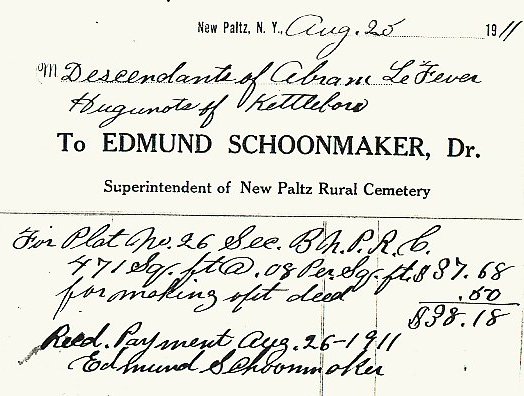 New Paltz, N. Y., Aug. 25 1911
M Descendants of Abram LeFever
Hugunots of Kettleboro
To EDMUND SCHOONMAKER, Dr.
Superintendent of New Paltz Rural Cemetery
For Plat No. 26 Sec. B N.P.R.C.
471 Sq. ft @ .08 Per Sq. ft. $37.68
for making out deed .50
$38.18
Recd. Payment Aug. 26-1911
Edmund Schoonmaker